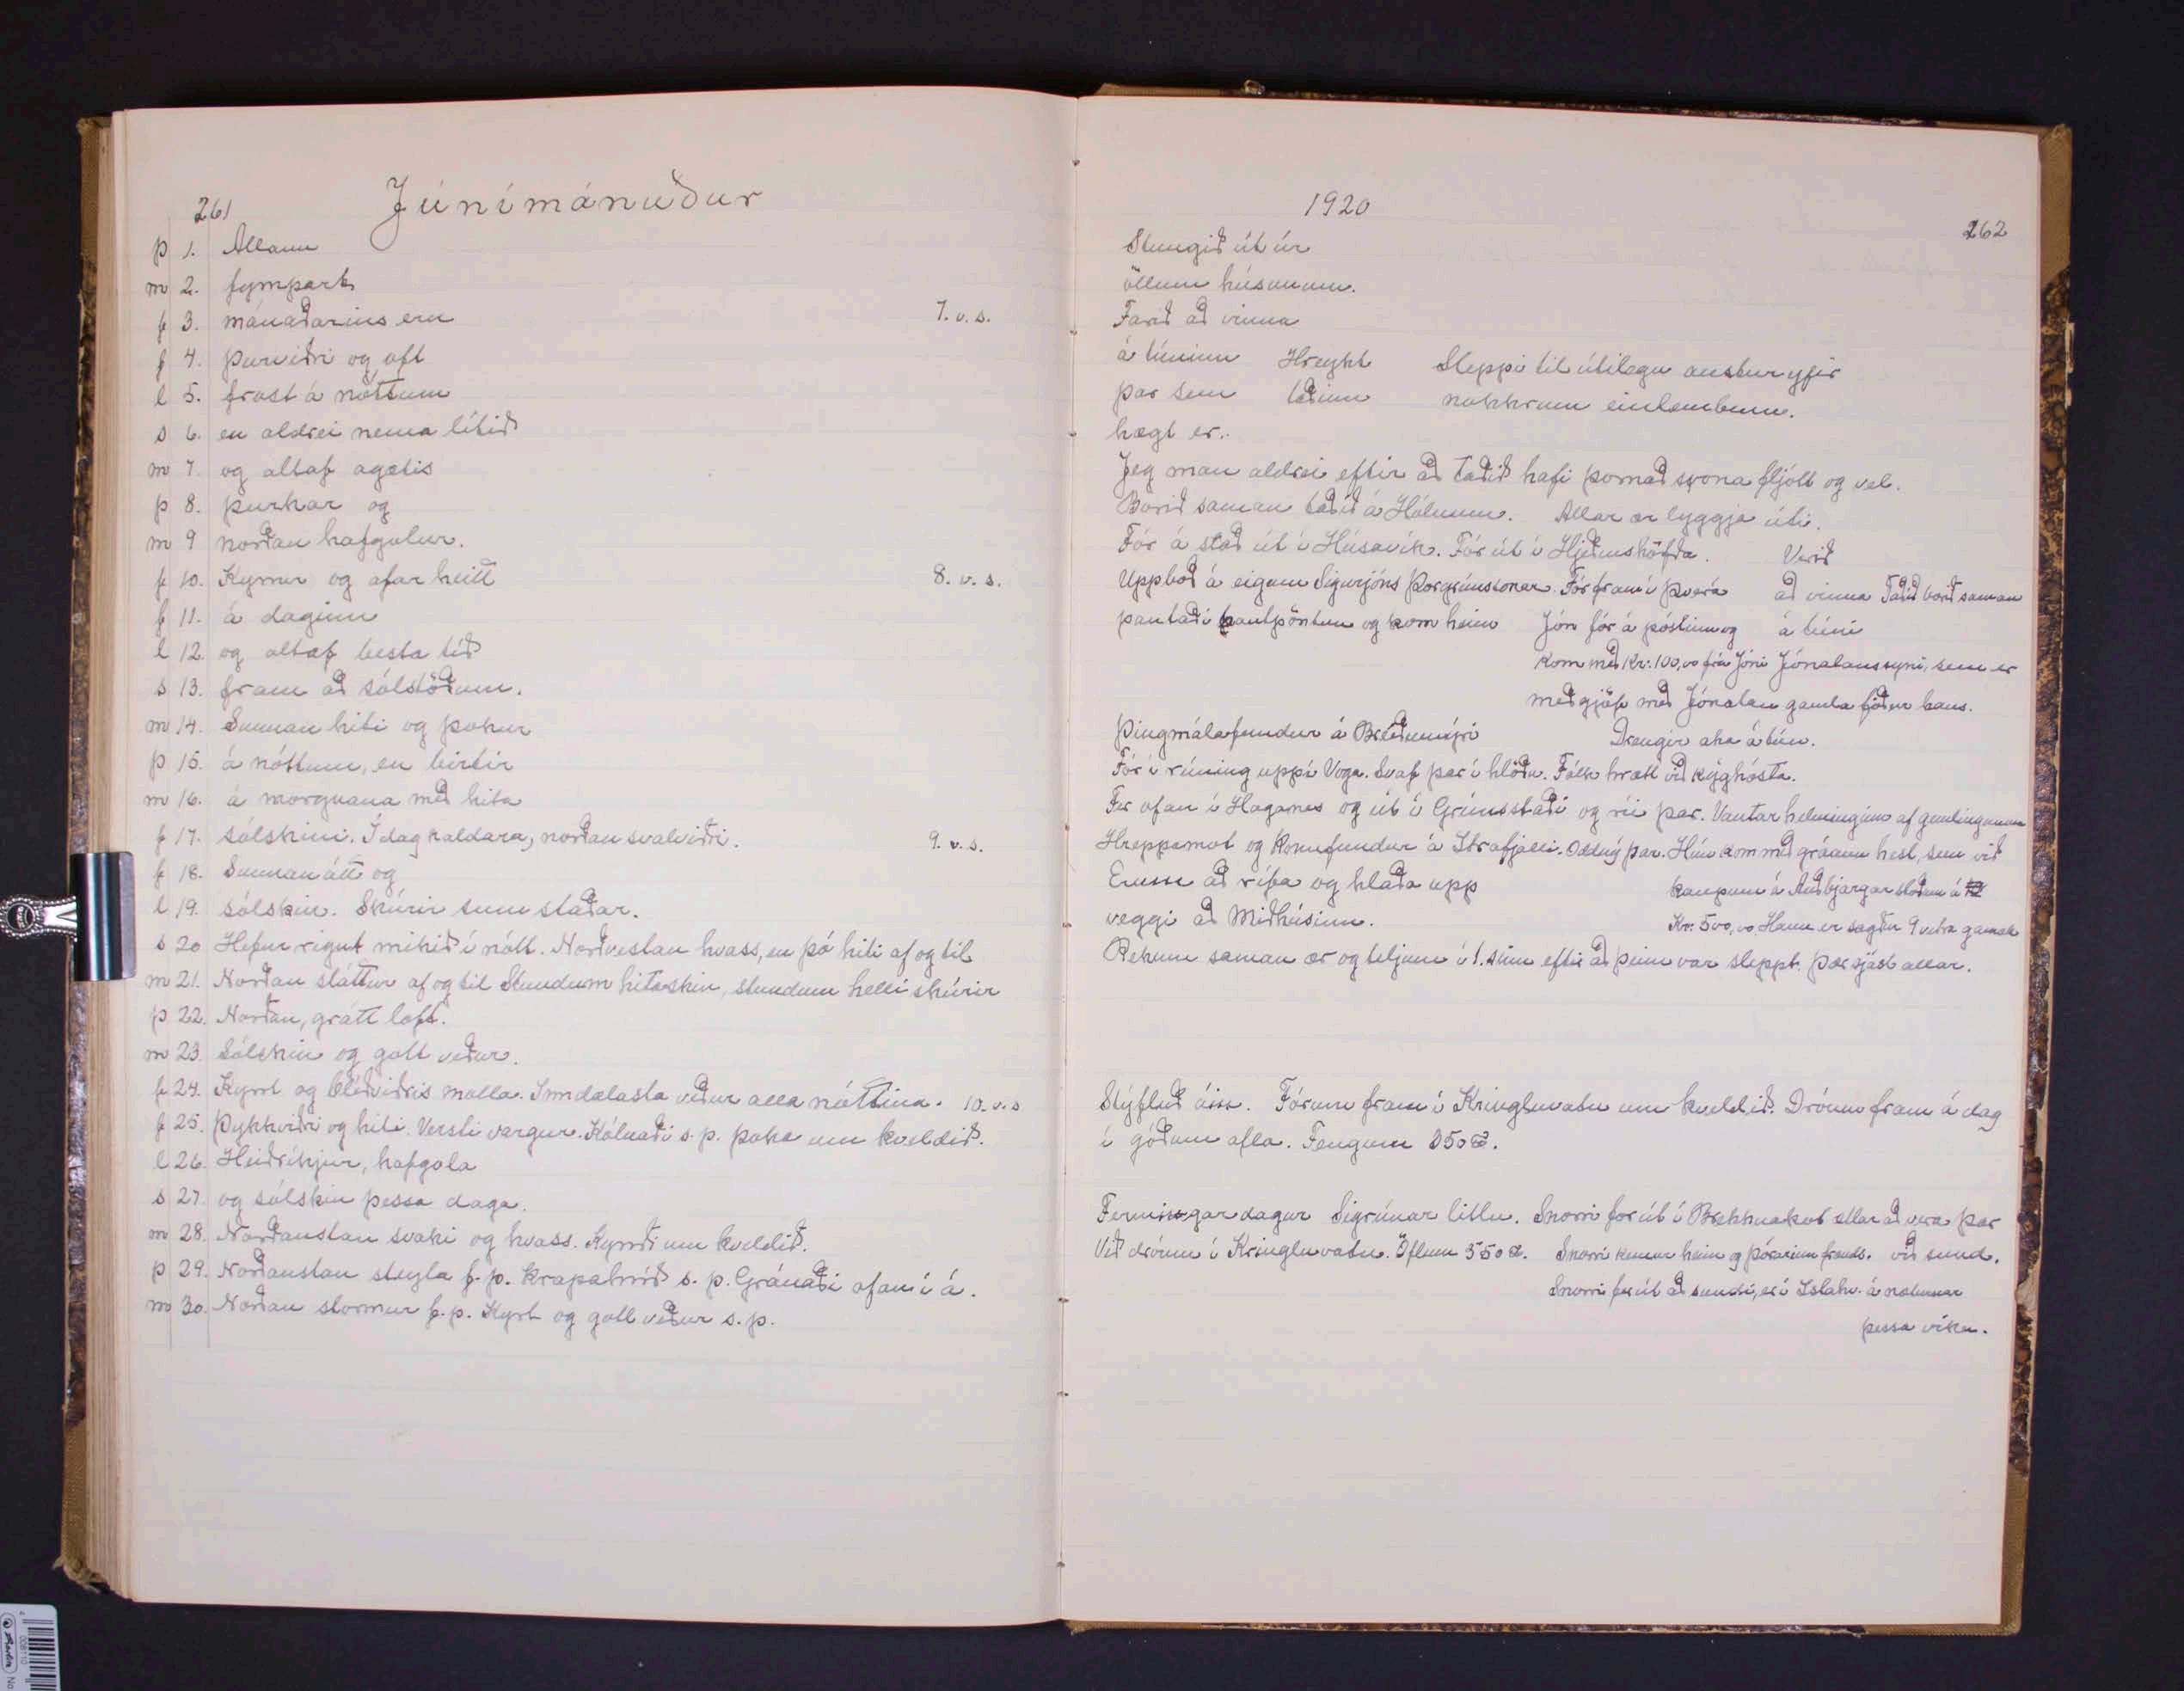 261 Júnímánuður
þ 1. Allann
m 2. fympart
f 3. mánaðarins eru 7. v. s.
f 4. þurviðri og oft
l 5. frost á nóttum
s 6. en aldrei nema lítið
m 7. og altaf agætis
þ 8. þurkar og
m 9 norðan hafgolur.
f 10. Kyrrur og afar heitt 8. v. s.
f 11. á daginn
l 12. og altaf besta tíð
s 13. fram að sólstöðum.
m 14. Sunnan hiti og þokur
þ 15. á nóttum, en birtir
m 16. á morgnana með hita
f 17. sólskini. Í dag kaldara, norðan svalviðri. 9. v. s.
f 18. Sunnan átt og
l 19. sólskin. Skúrir sum staðar.
s 20 Hefur rignt mikið í nótt. Norðvestan hvass, en þó hiti af og til
m 21. Norðan sláttur af og til Stundum hitaskin, stundum helli skúrir
þ 22. Norðan, grátt loft.
m 23. Sólskin og gott veður.
f 24. Kyrt og blíðviðris molla. Inndælasta veður alla nóttina. 10. v. s
f 25. Þykkviðri og hiti. Versti vargur. Kólnaði s. p. þoka um kveldið.
l 26. Heiðríkjur, hafgola
s 27. og sólskin þessa daga.
m 28. Norðaustan svaki og hvass. Kyrrði um kveldið.
þ 29. Norðaustan steyla f. p. krapahríð s. p. Gránaði ofaní á.
m 30. Norðan stormur f. p. Kyrt og gott veður s. p.
1920
262
Stungið út úr
öllum húsunum.
Farið að vinna
á túninu Hreykt Sleppi til útilegu austur yfir
þar sem taðinu nokkrum einlembum.
hægt er.
Jeg man aldrei eftir að taðið hafi þornað svona fljótt og vel.
Borið saman taðið á Hólnum. Allar ær lyggja úti.
Fór á stað út í Húsavík. Fór út í Hjeðinshöfða. Verið
Uppboð á eigum Sigurjóns Þorgrímssonar. Fór fram í Þverá að vinna Taðið borið saman
pantaði pöntun og kom heim Jón fór á póstinn og á túni
kom með Kr: 100,00 frá Jóni Jónatanssyni, sem er
meðgjöf með Jónatan gamla föður hans.
Þingmálafundur á Breiðumýri Drengir aka á tún.
Fór í rúning uppí Voga. Svaf þar í hlöðu. Fólk hrætt við kíghósta.
Fer ofan í Haganes og út í Grímsstaði og rúi þar. Vantar helminginn af gemlingunum
Hreppamot og Konufundur á Litrafjalli. Oddný þar. Hún kom með gráann hest, sem við
Erum að rífa og hlaða upp kaupum á Auðbjargarstöðum á
veggi að Miðhúsinu. Kr: 500,00 Hann er sagður 9 vetra gamall
Rekum saman ær og teljum í 1. sinn eftir að þeim var sleppt. Þær sjást allar.
Stýflað áin. Fórum fram í Kringluvatn um kveldið. Drónum fram á dag
í góðum afla. Fengum 350 ℔.
Fermingardagur Sigrúnar litlu. Snorri for út í Brekknakot ellar að vera þar
Við drónum í Kringluvatni. Öflum 350 ℔. Snorri kemur heim og Þórarinn frændi. við sund.
Snorri fer út að sundi, er í Ystahv. á næturnar
þessa viku.